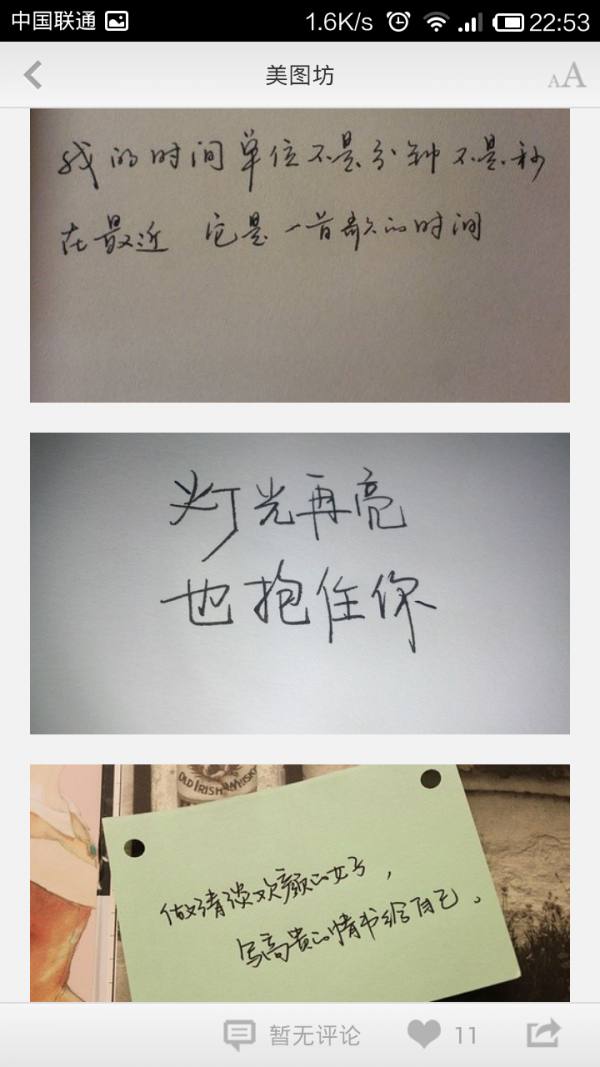 中国联通
1.6K/s
22:53
美图坊
AA
我的时间单位不是分钟不是秒
在最近 它是一首歌的时间
灯光再亮
也抱住你
OLD IRISH WHISKY
做清淡欢颜的女子，
写高贵的情书给自己。
暂无评论
11